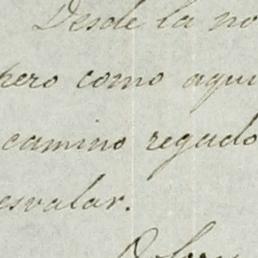 Desde la no
pero como aqui
camino regado
esvalar.